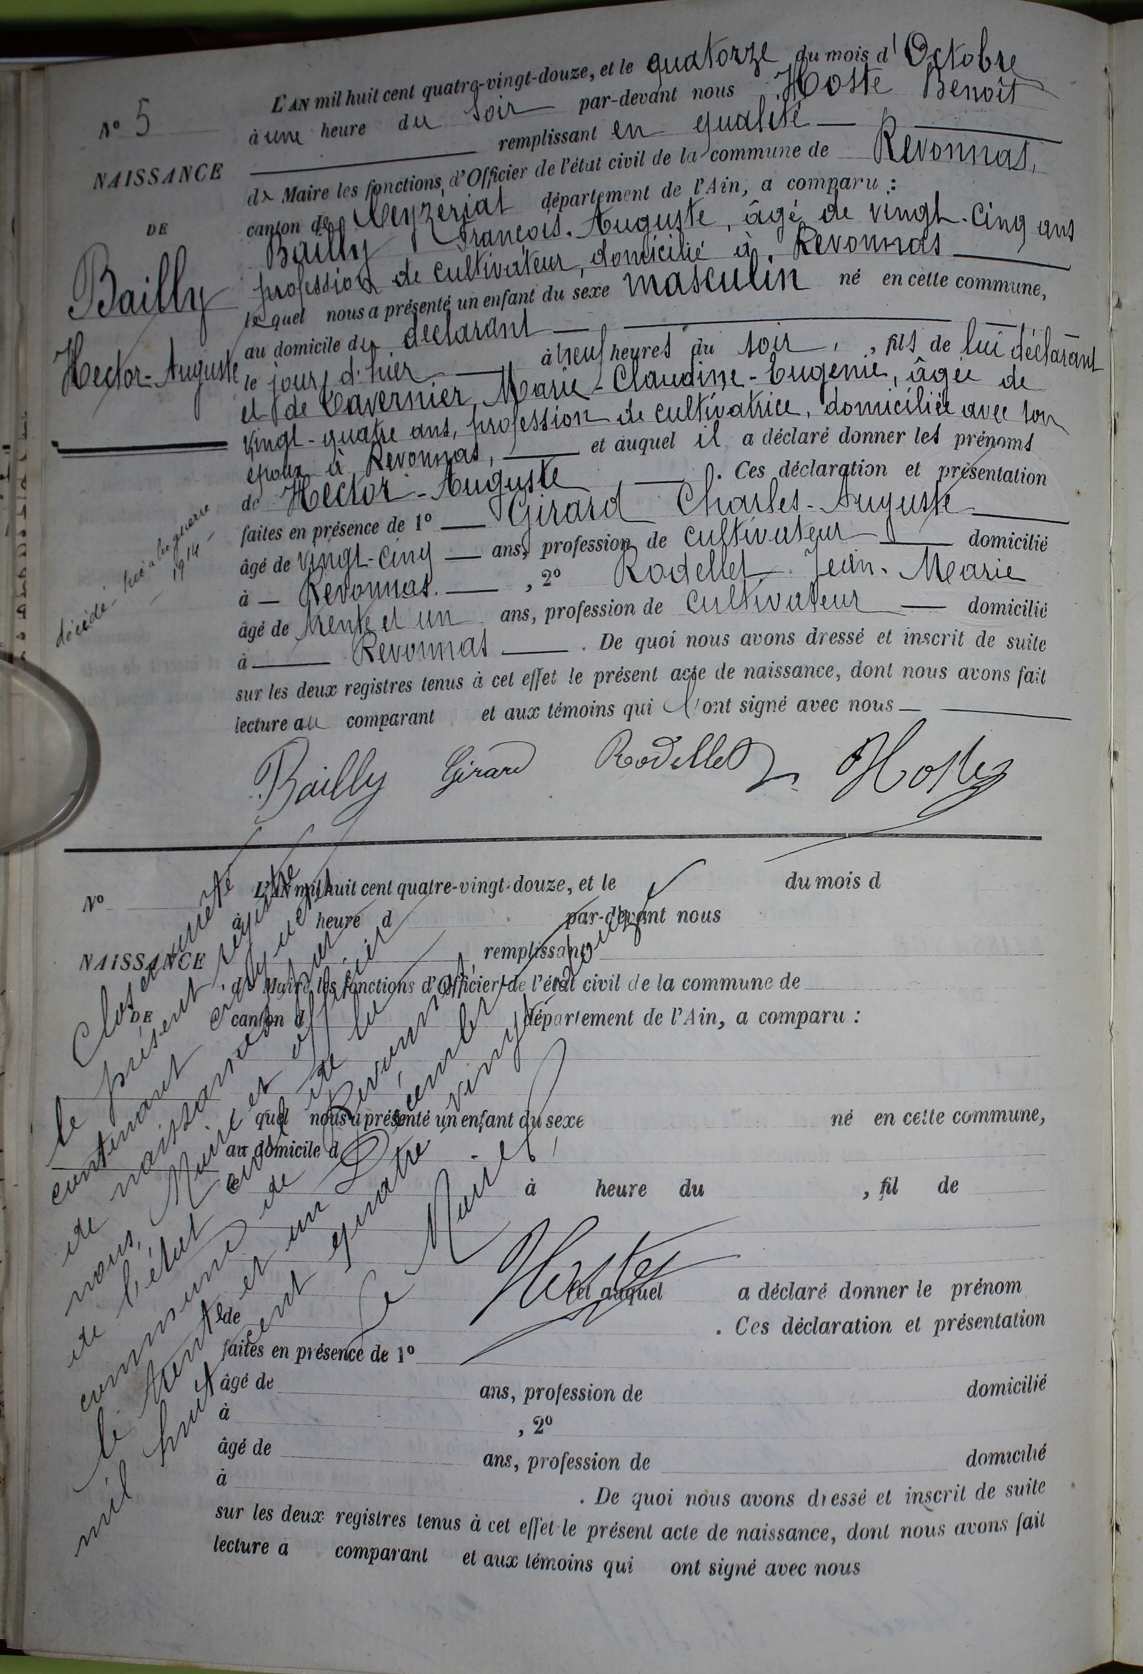 L'AN mil huit cent quatre-vingt-douze, et le quatorze du mois d'Octobre
N° 5
à une heure du soir par-devant nous Hoste Benoît
remplissant en qualité
NAISSANCE
de Maire les fonctions d'Officier de l'état civil de la commune de Revonnas,
DE
canton de Ceyzériat département de l'Ain, a comparu :
Bailly François-Auguste, âgé de vingt-cinq ans
Bailly
profession de cultivateur, domicilié à Revonnas
lequel nous a présenté un enfant du sexe masculin né en cette commune,
Hector-Auguste
au domicile du déclarant
le jour d'hier à neuf heures du soir, fils de lui déclarant
et de Tavernier, Marie-Claudine-Eugénie, âgée de
vingt-quatre ans, profession de cultivatrice, domiciliée avec son
époux à Revonnas, et auquel il a déclaré donner les prénoms
de Hector-Auguste. Ces déclaration et présentation
faites en présence de 1° Girard Charles-Auguste
âgé de vingt-cinq ans, profession de cultivateur domicilié
à Revonnas. , 2° Rodellet Jean-Marie
âgé de trente et un ans, profession de cultivateur domicilié
à Revonnas. De quoi nous avons dressé et inscrit de suite
sur les deux registres tenus à cet effet le présent acte de naissance, dont nous avons fait
lecture au comparant et aux témoins qui l'ont signé avec nous
décédé tué à la guerre
1914
Bailly Girard Rodellet Hoste
N°
L'AN mil huit cent quatre-vingt-douze, et le du mois d
à heure d par-devant nous
NAISSANCE
remplissant
d Maire les fonctions d'Officier de l'état civil de la commune de
DE
canton d département de l'Ain, a comparu :
quel nous a présenté un enfant du sexe né en cette commune,
au domicile d
le à heure du , fil de
et auquel a déclaré donner le prénom
de . Ces déclaration et présentation
faites en présence de 1°
âgé de ans, profession de domicilié
à , 2°
âgé de ans, profession de domicilié
à . De quoi nous avons dressé et inscrit de suite
sur les deux registres tenus à cet effet le présent acte de naissance, dont nous avons fait
lecture a comparant et aux témoins qui ont signé avec nous
Clos et arrêté
le présent registre
contenant cinq actes
de naissance par
nous, Maire et officier
de l'état civil de la
commune de Revonnas,
le trente et un Décembre
mil huit cent quatre vingt douze
Le Maire,
Hoste